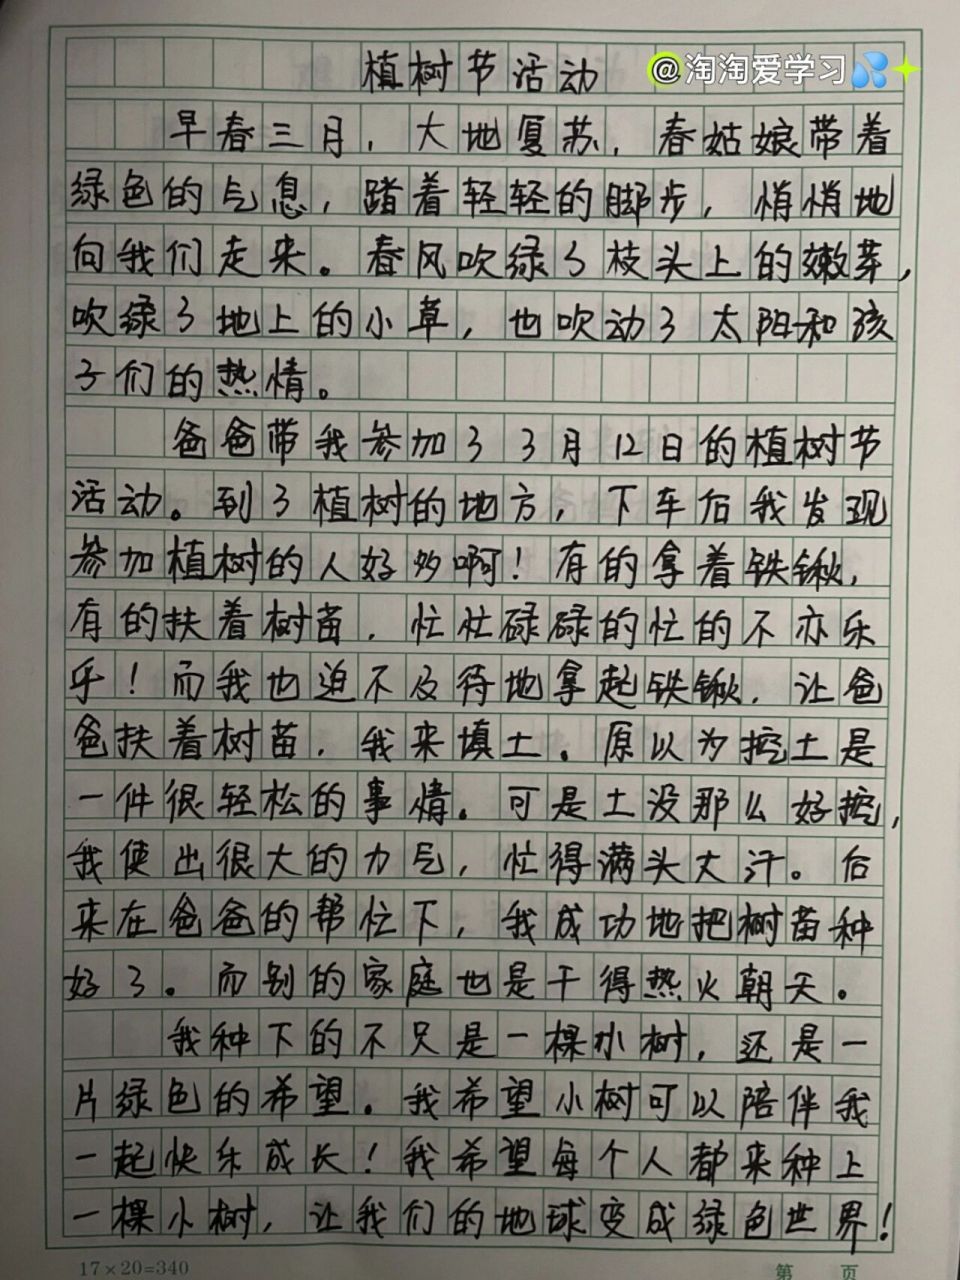 植树节活动
@淘淘爱学习
早春三月，大地复苏，春姑娘带着
绿色的气息，踏着轻轻的脚步，悄悄地
向我们走来。春风吹绿了枝头上的嫩芽，
吹绿了地上的小草，也吹动了太阳和孩
子们的热情。
爸爸带我参加了3月12日的植树节
活动。到了植树的地方，下车后我发现
参加植树的人好多啊！有的拿着铁锹，
有的扶着树苗，忙忙碌碌的忙的不亦乐
乎！而我也迫不及待地拿起铁锹，让爸
爸扶着树苗，我来填土。原以为挖土是
一件很轻松的事情。可是土没那么好挖，
我使出很大的力气，忙得满头大汗。后
来在爸爸的帮忙下，我成功地把树苗种
好了。而别的家庭也是干得热火朝天。
我种下的不只是一棵小树，还是一
片绿色的希望。我希望小树可以陪伴我
一起快乐成长！我希望每个人都来种上
一棵小树，让我们的地球变成绿色世界！
17×20=340
第 页